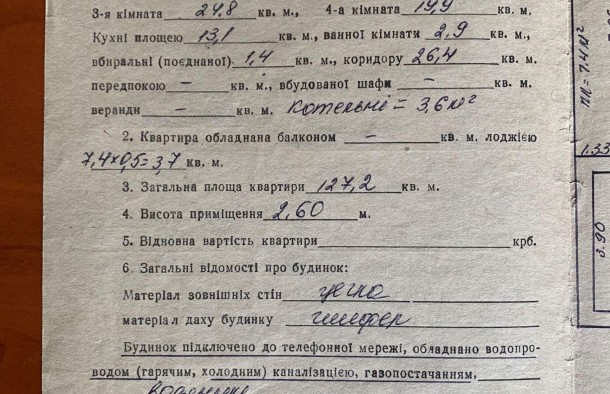 3-я кімната 24,8 кв. м., 4-а кімната 19,9 кв. м.
Кухні площею 13,1 кв. м., ванної кімнати 2,9 кв. м.,
вбиральні (поєднаної) 1,4 кв. м., коридору 26,4 кв. м.
передпокою — кв. м., вбудованої шафи — кв. м.
веранди — кв. м. Котельні = 3,6 м²
2. Квартира обладнана балконом — кв. м. лоджією
7,4x0,5=3,7 кв. м.
3. Загальна площа квартири 127,2 кв. м.
4. Висота приміщення 2,60 м.
5. Відновна вартість квартири крб.
6. Загальні відомості про будинок:
Матеріал зовнішніх стін цегла
матеріал даху будинку шифер
Будинок підключено до телефонної мережі, обладнано водопро-
водом (гарячим, холодним) каналізацією, газопостачанням,
ПЛ=7.4 м²
1.33
3.90